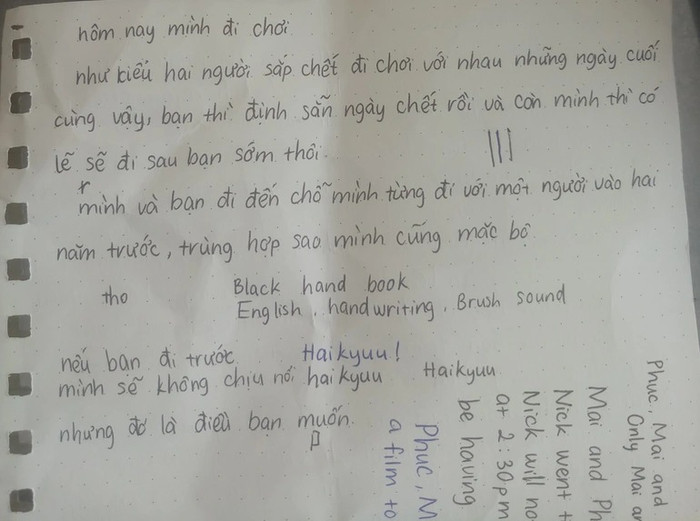 hôm nay mình đi chơi
như kiểu hai người sắp chết đi chơi với nhau những ngày cuối
cùng vậy, bạn thì định sẵn ngày chết rồi và còn mình thì có
lẽ sẽ đi sau bạn sớm thôi.
mình và bạn đi đến chỗ mình từng đi với một người vào hai
năm trước, trùng hợp sao mình cũng mặc bộ
tho
Black hand book
English, handwriting, Brush sound
nếu bạn đi trước
Haikyuu!
mình sẽ không chịu nổi haikyuu
Haikyuu
nhưng đó là điều bạn muốn.
Phuc, Mai and
Only Mai an
Mai and Ph
Nick went t
Nick will no
at 2:30 pm
be having
Phuc, M
a film to